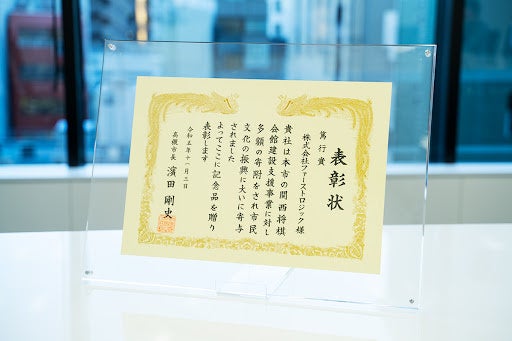 表彰状
篤行賞
株式会社ファーストロジック様
貴社は本市の関西将棋
会館建設支援事業に対し
多額の寄附をされ市民
文化の振興に大いに寄与
されました
よってここに記念品を贈り
表彰します
令和五年十一月三日
高槻市長 濱田剛史